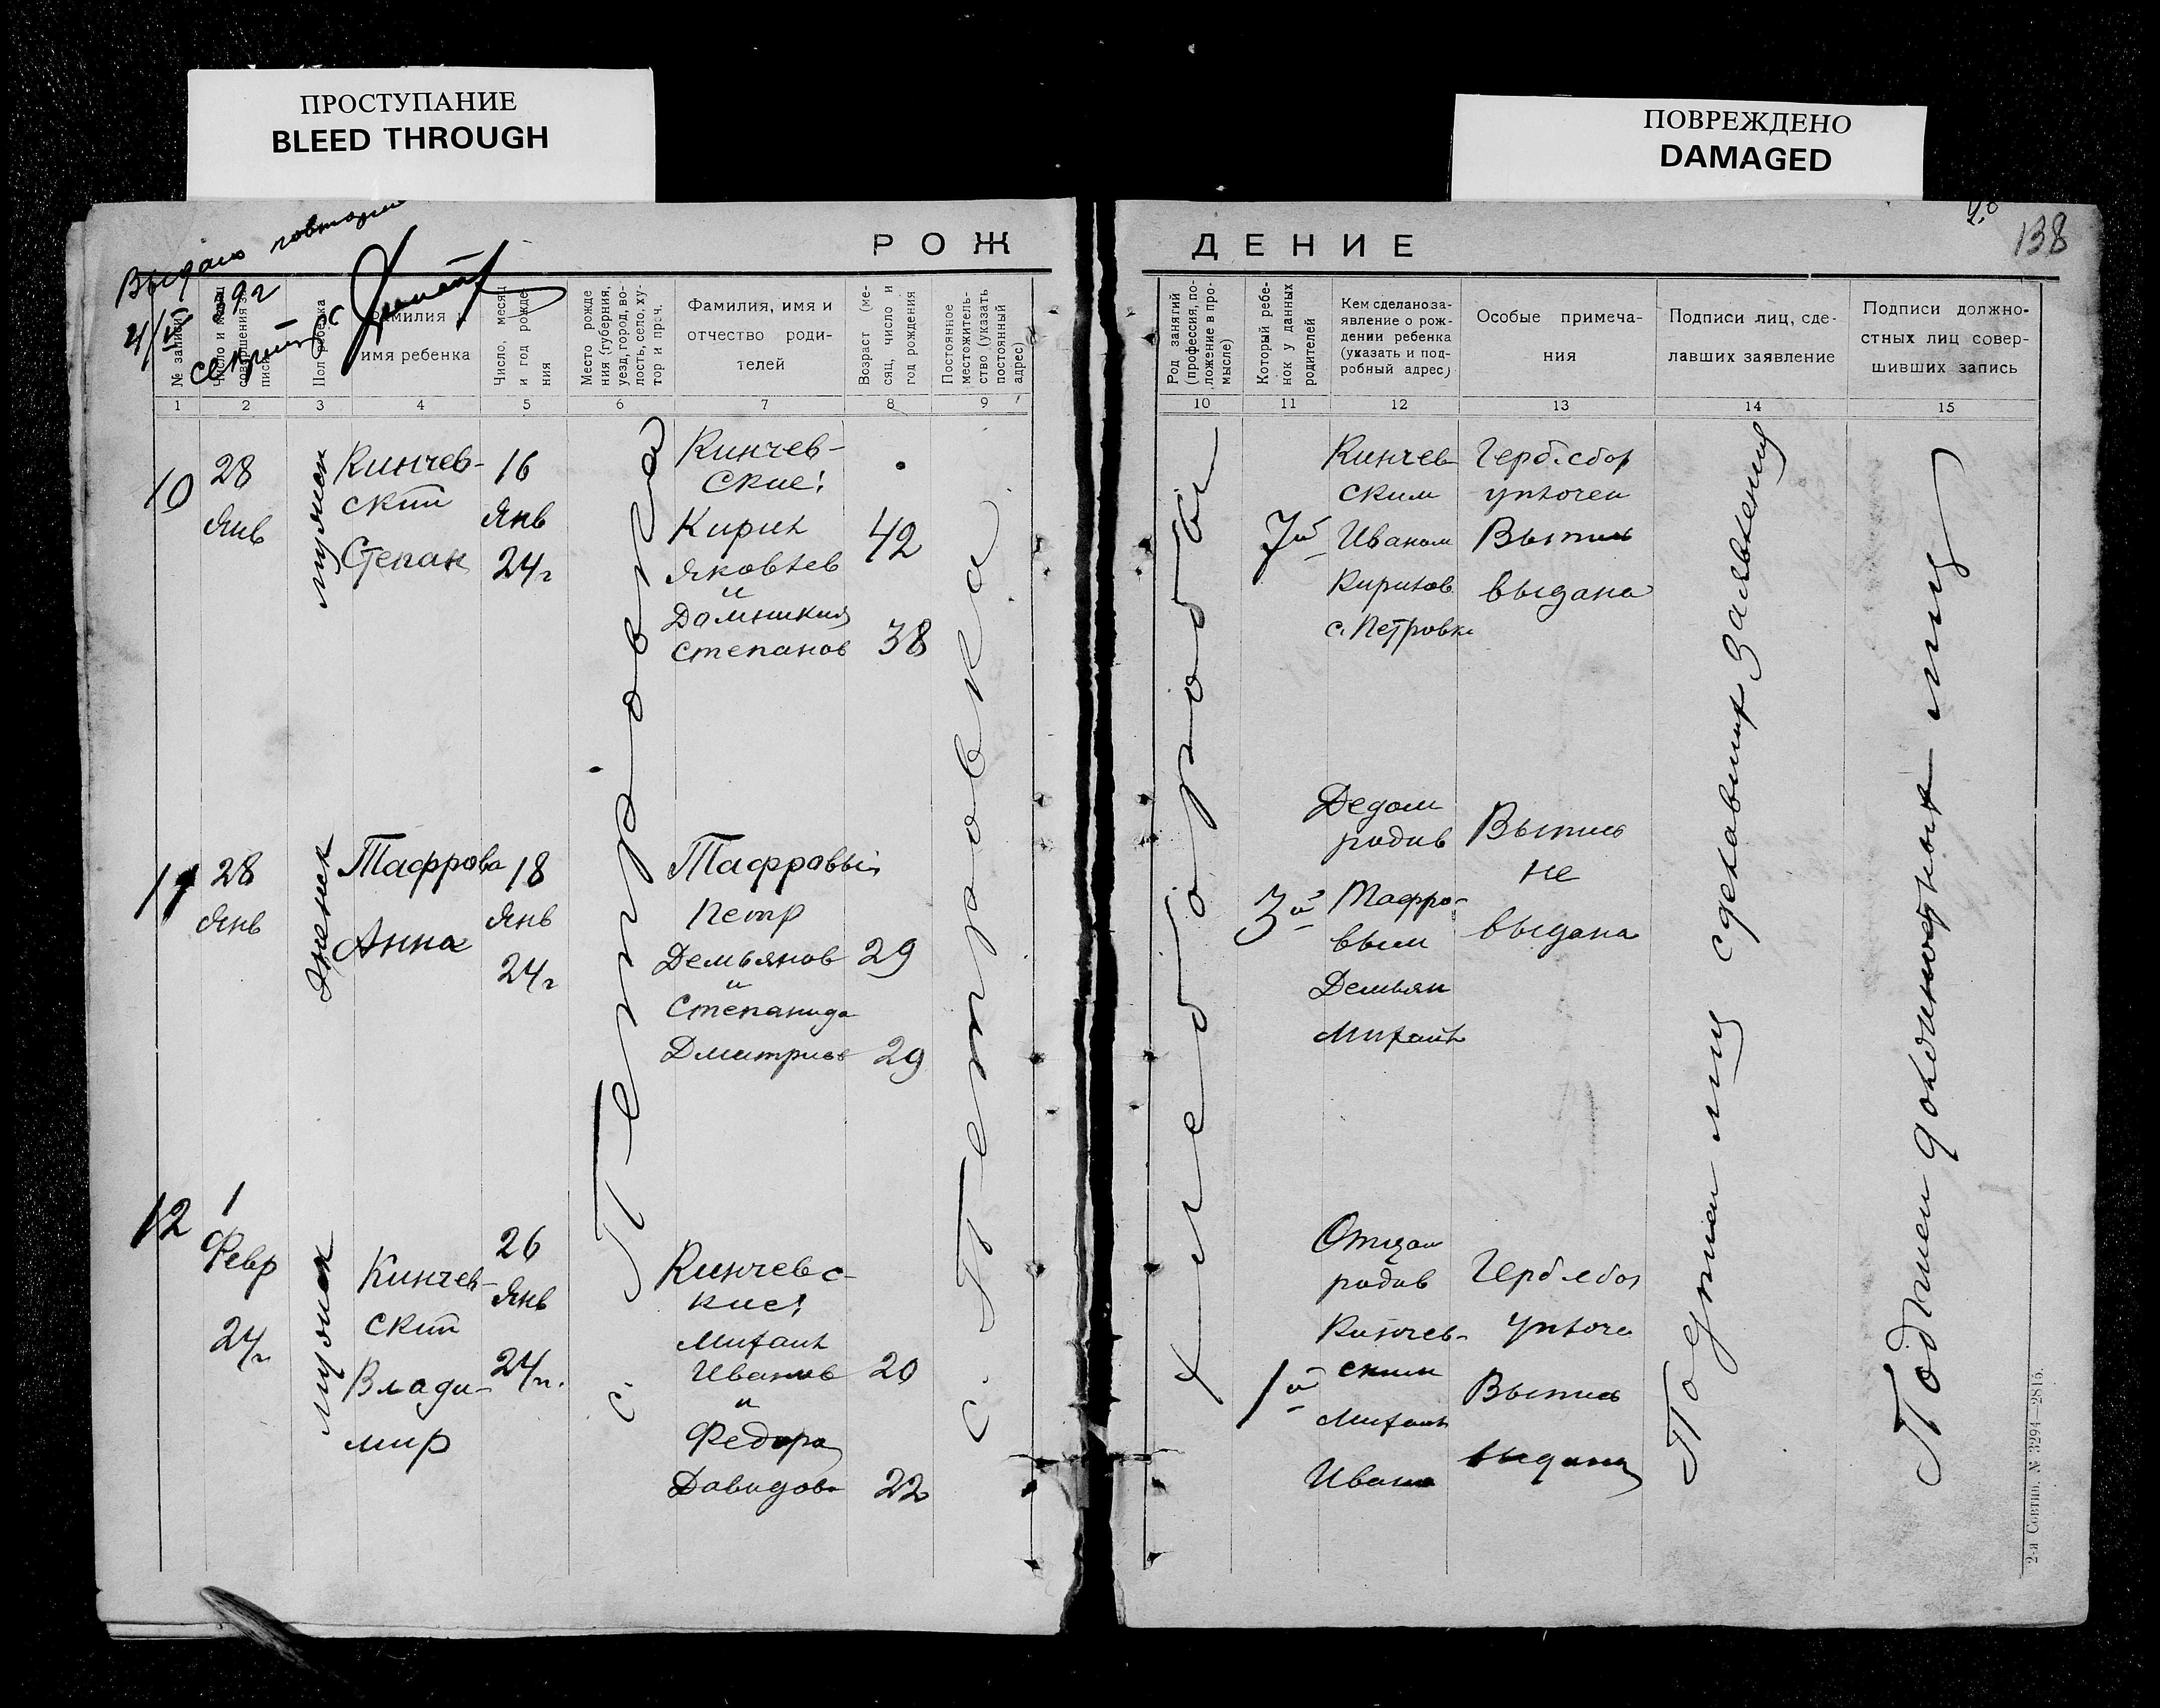 ПРОСТУПАНИЕ
BLEED THROUGH
ПОВРЕЖДЕНО
DAMAGED
Выдано
138
РОЖ
ДЕНИЕ
№ записи
Число и месяц совершения записи
Пол ребенка
Фамилия и
имя ребенка
Число, месяц
и год рожде-
ния
Место рожде-
ния (губерния,
уезд, город, во-
лость, село, ху-
тор и проч.
Фамилия, имя и
отчество роди-
телей
Возраст (ме-
сяц, число и
год рождения
Постоянное
местожитель-
ство (указать
постоянный
адрес)
Род занятий
(профессия, по-
ложение в про-
мысле)
Который ребе-
нок у данных
родителей
Кем сделано за-
явление о рож-
дении ребенка
(указать и под-
робный адрес)
Особые примеча-
ния
Подписи лиц, сде-
лавших заявление
Подписи должно-
стных лиц совер-
шивших запись
1 2 3 4 5 6 7 8 9
10 11 12 13 14 15
10
28
Янв
мужск
Кинчев-
ский
Степан
16
Янв
24г
с. Петровка
Кинчев-
ские:
Кирил
Яковлев
и
Домникия
Степанов
42
38
с. Петровка
Хлебороб
7й
Кинчев
ским
Иваном
Кирилов
с. Петровк
Герб. сбор
уплочен
Выпись
выдана
Подписи лиц сделавших заявления
Подписи должностных лиц
11
28
Янв
женск
Тафрова
Анна
18
Янв
24г
Тафровы:
Петр
Демьянов
и
Степанида
Дмитриев
29
29
3й
Дедом
родив
Тафро-
вым
Демьян
Михаил
Выпись
не
выдана
12
1
Февр
24г
мужск
Кинчев-
ский
Влади-
мир
26
Янв
24г.
Кинчевс-
кие:
Михаил
Иванов
и
Федора
Давидов
20
22
1й
Отцом
родив
Кинчев-
ским
Михаил
Ивано
Герб сбор
уплоче
Выпись
выдана
2-я Совтип. № 3294—2815.